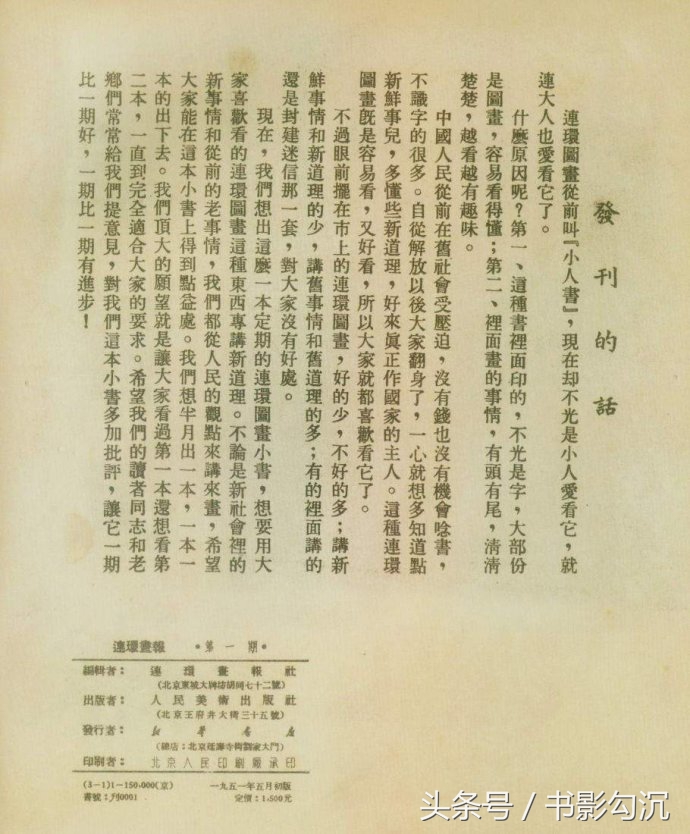 發刊的話
連環圖畫從前叫『小人書』，現在却不光是小人愛看它，就
連大人也愛看它了。
什麼原因呢？第一、這種書裡面印的，不光是字，大部份
是圖畫，容易看得懂；第二、裡面畫的事情，有頭有尾，淸淸
楚楚，越看越有趣味。
中國人民從前在舊社會受壓迫，沒有錢也沒有機會唸書，
不識字的很多。自從解放以後大家翻身了，一心就想多知道點
新鮮事兒，多懂些新道理，好來眞正作國家的主人。這種連環
圖畫旣是容易看，又好看，所以大家就都喜歡看它了。
不過眼前擺在市上的連環圖畫，好的少，不好的多；講新
鮮事情和新道理的少，講舊事情和舊道理的多；有的裡面講的
還是封建迷信那一套，對大家沒有好處。
現在，我們想出這麼一本定期的連環圖畫小書，想要用大
家喜歡看的連環圖畫這種東西專講新道理。不論是新社會裡的
新事情和從前的老事情，我們都從人民的觀點來講來畫，希望
大家能在這本小書上得到點益處。我們想半月出一本，一本一
本的出下去。我們頂大的願望就是讓大家看過第一本還想看第
二本，一直到完全適合大家的要求。希望我們的讀者同志和老
鄉們常常給我們提意見，對我們這本小書多加批評，讓它一期
比一期好，一期比一期有進步！
連環畫報 ·第一期·
編輯者： 連環畫報社
（北京東城大牌坊胡同七十二號）
出版者： 人民美術出版社
（北京王府井大街三十五號）
發行者： 新華書店
（總店：北京延壽寺街劉家大門）
印刷者： 北京人民印刷廠承印
(3－1)1－150,000(京) 一九五一年五月初版
書號：刋0001 定價：1,500元
头条号 / 书影勾沉